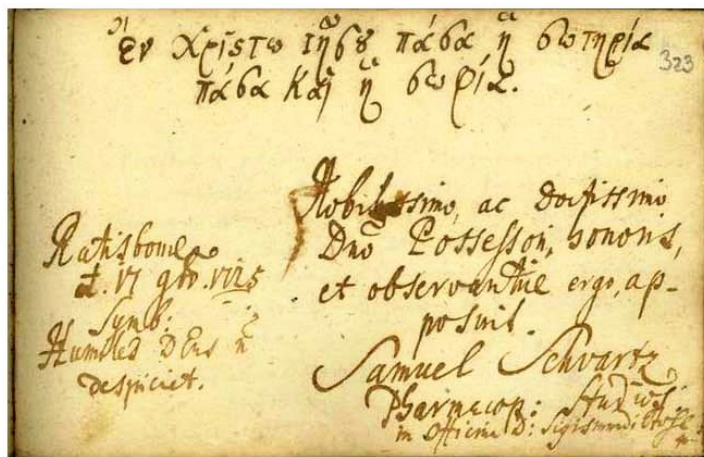 Ἐν Χρίστω Ἰησου πάσα ἡ σωτηρία
πάσα Καὶ ἡ σωφία.
323
Ratisbonæ
d. 17
Symb:
Humiles DEus ñ
despiciet.
Nobilissimo, ac Doctissimo
Dnō Possessori, honoris,
et observantiæ ergo, ap-
posuit.
Samuel Schvartz
Pharmacop: Studios.
in Officina D: Sigismundi